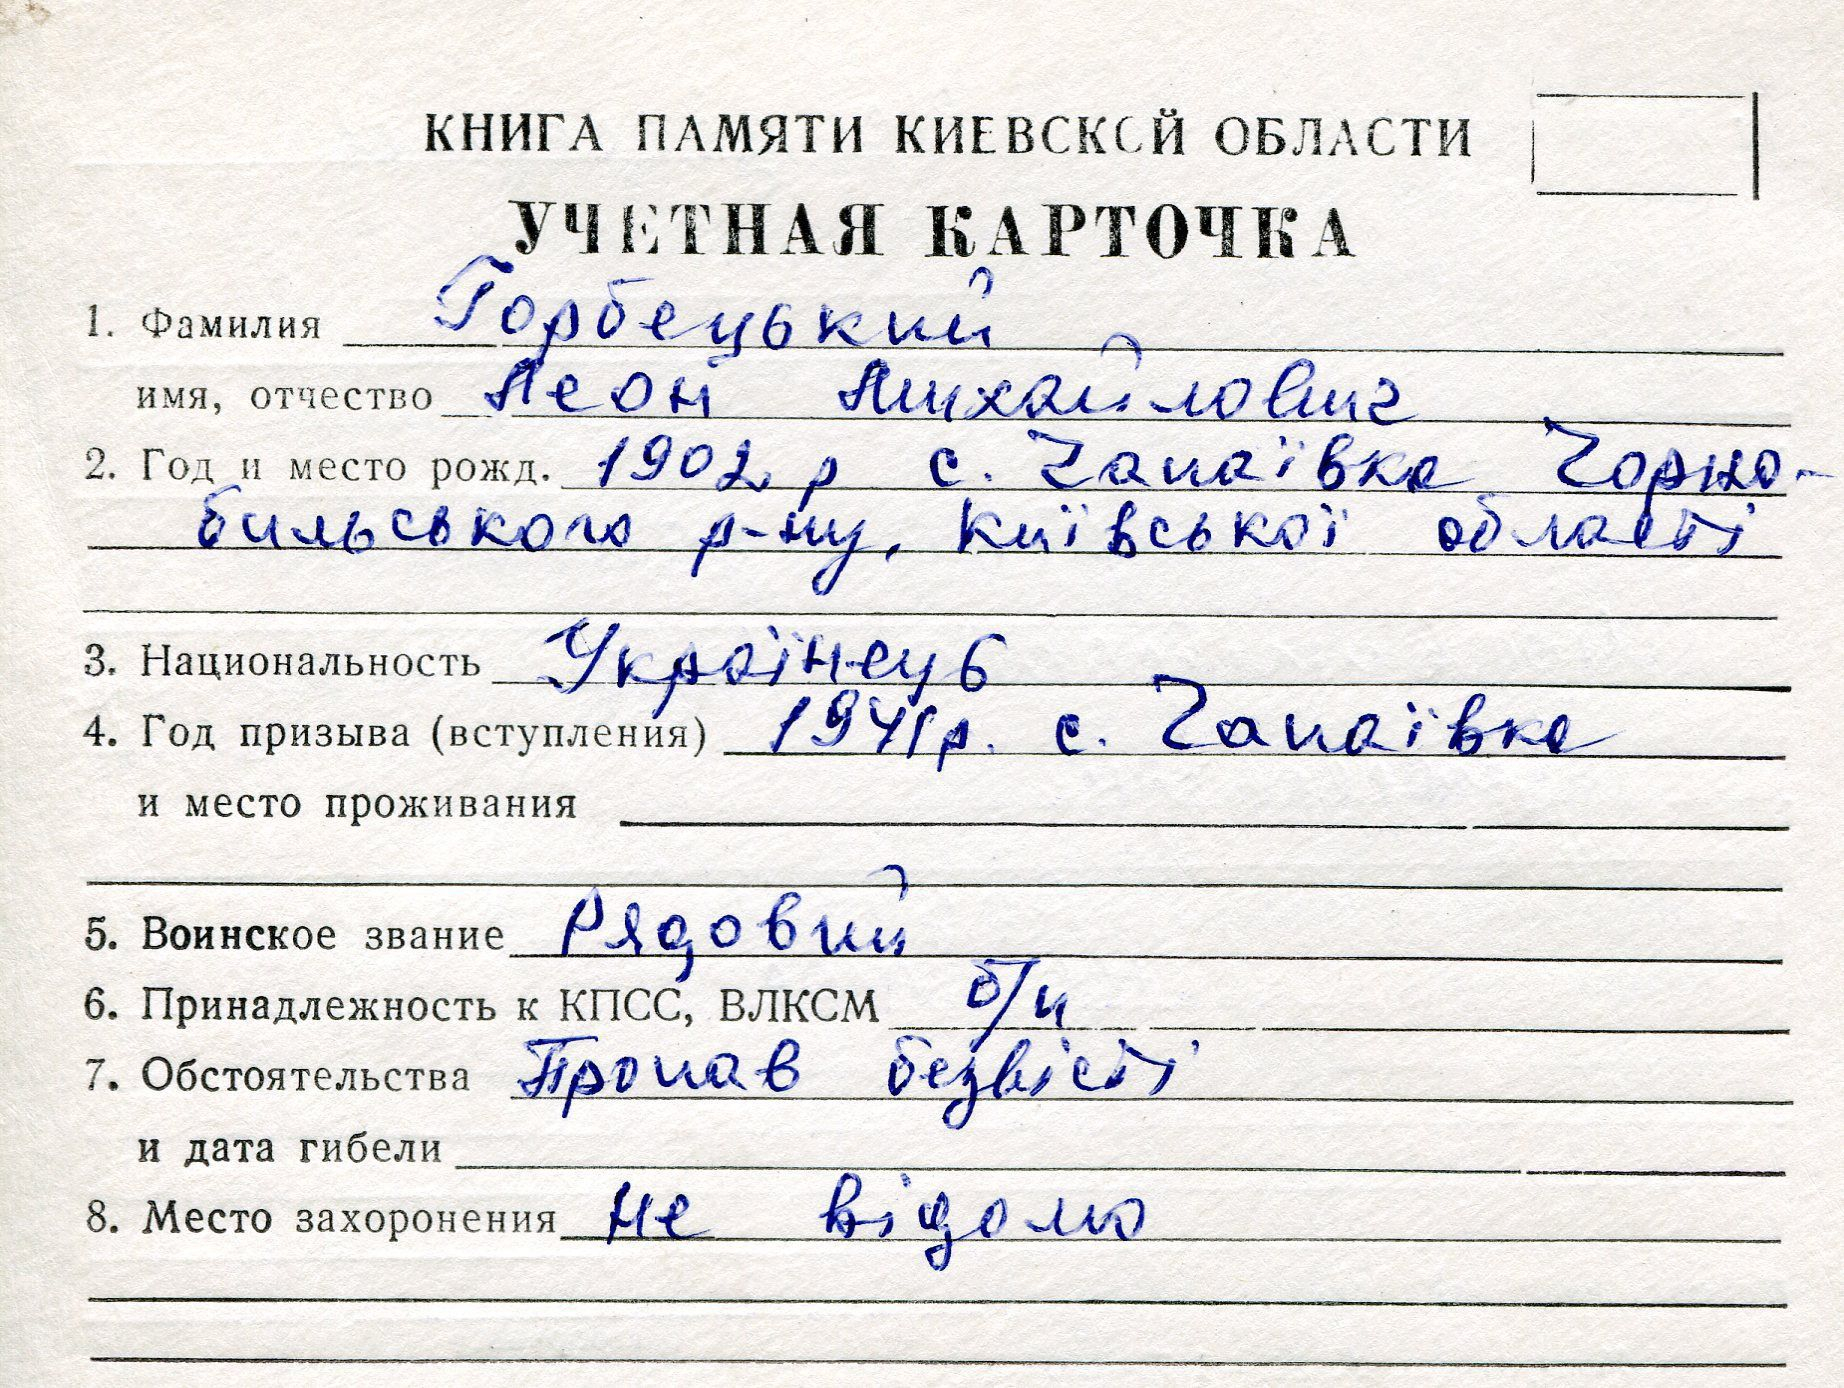 КНИГА ПАМЯТИ КИЕВСКОЙ ОБЛАСТИ
УЧЕТНАЯ КАРТОЧКА
1. Фамилия Горбецький
имя, отчество Леон Михайлович
2. Год и место рожд. 1902 р с. Чапаївка Чорно-
бильського р-ну, Київської області
3. Национальность Українець
4. Год призыва (вступления) 1941р. с. Чапаївка
и место проживания
5. Воинское звание Рядовий
6. Принадлежность к КПСС, ВЛКСМ б/п
7. Обстоятельства Пропав безвісті
и дата гибели
8. Место захоронения не відомо